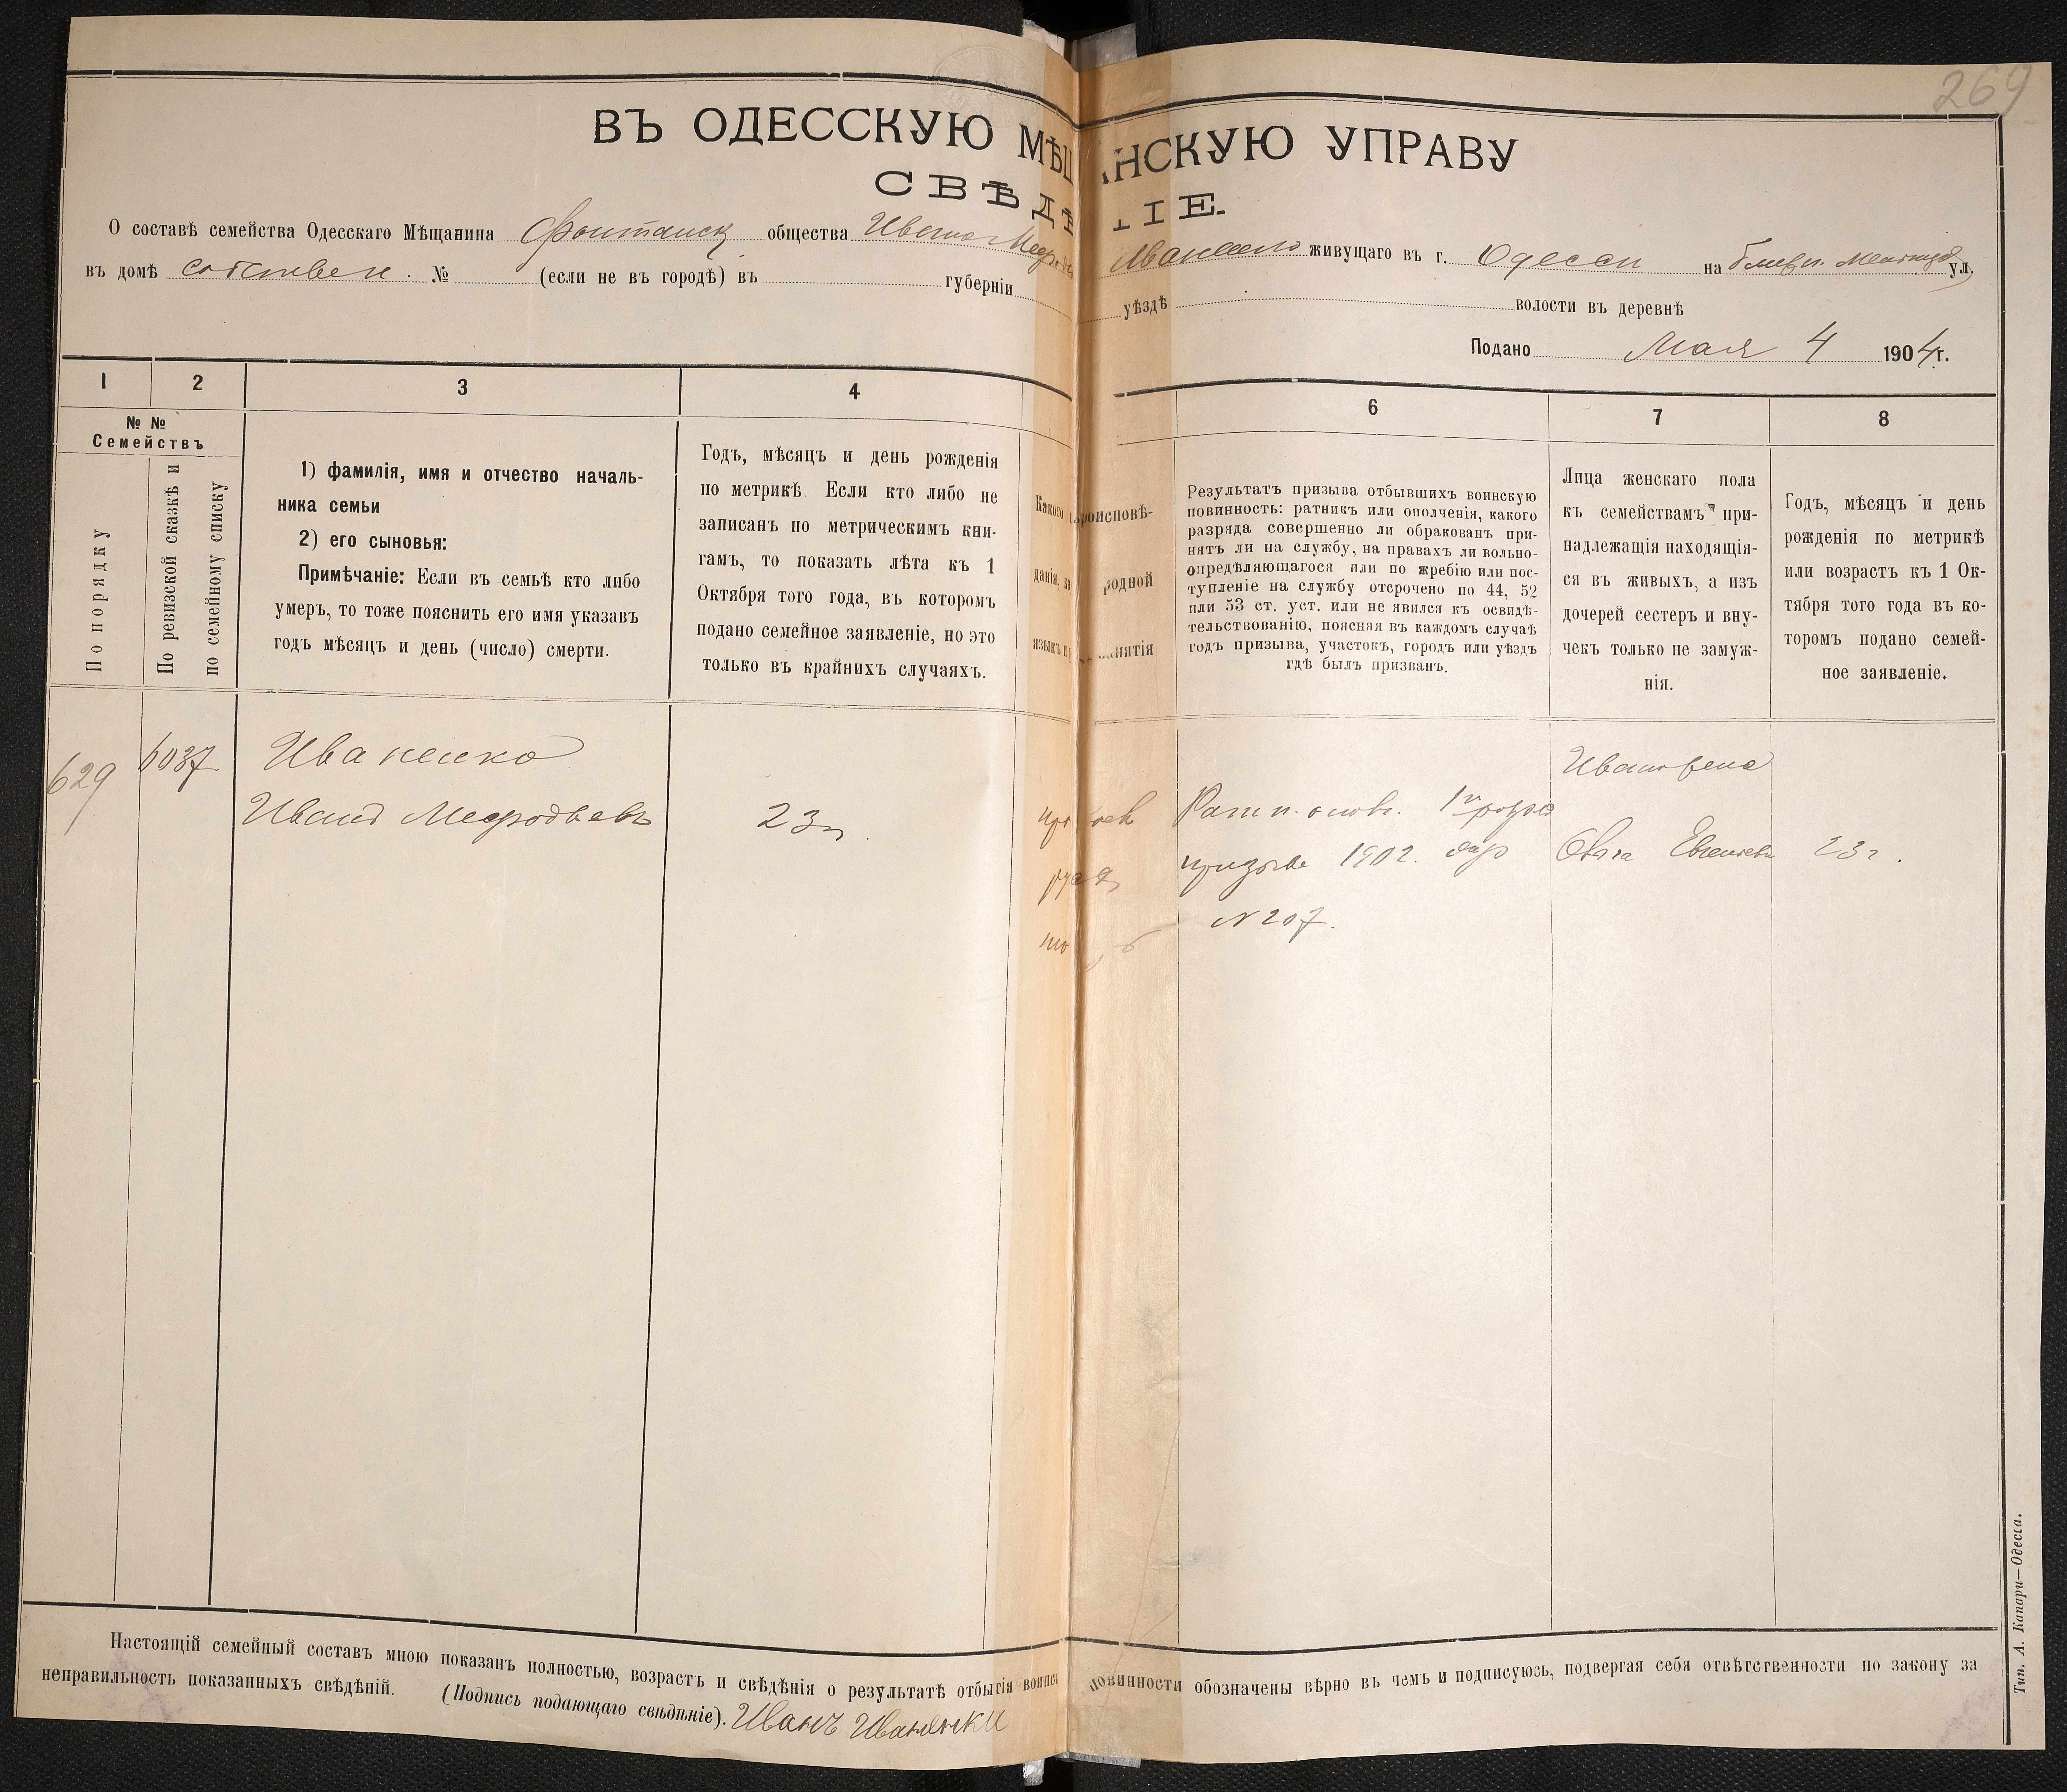 269
ВЪ ОДЕССКУЮ МѢЩ АНСКУЮ УПРАВУ
СВѢДѢ НІЕ.
О составѣ семейства Одесскаго Мѣщанина Фонтанск общества Ивана Меѳодь Иваненко живущаго въ г. Одессѣ на ул,
въ домѣ собствен. № (если не въ городѣ) въ губерніи уѣздѣ волости въ деревнѣ
Подано Мая 4 1904 г.
1 2 3 4 6 7 8
№ №
Семействъ
По порядку
По ревизской сказкѣ и
по семейному списку
1) фамилія, имя и отчество началь-
ника семьи
2) его сыновья:
Примѣчаніе: Если въ семьѣ кто либо
умеръ, то тоже пояснить его имя указавъ
годъ мѣсяцъ и день (число) смерти.
Годъ, мѣсяцъ и день рожденія
по метрикѣ Если кто либо не
записанъ по метрическимъ кни-
гамъ, то показать лѣта къ 1
Октября того года, въ которомъ
подано семейное заявленіе, но это
только въ крайнихъ случаяхъ.
Какого роисповѣ-
данія, родной
языкъ и нятія
Результатъ призыва отбывшихъ воинскую
повинность: ратникъ или ополченія, какого
разряда совершенно ли обракованъ при-
нятъ ли на службу, на правахъ ли вольно-
опредѣляющагося или по жребію или пос-
тупленіе на службу отсрочено по 44, 52
или 53 ст. уст. или не явился къ освидѣ-
тельствованію, поясняя въ каждомъ случаѣ
годъ призыва, участокъ, городъ или уѣздъ
гдѣ былъ призванъ.
Лица женскаго пола
къ семействамъ при-
надлежащія находящія-
ся въ живыхъ, а изъ
дочерей сестеръ и вну-
чекъ только не замуж-
нія.
Годъ, мѣсяцъ и день
рожденія по метрикѣ
или возрастъ къ 1 Ок-
тября того года въ ко-
торомъ подано семей-
ное заявленіе.
629 6037 Иваненко
Иванъ Меѳодьевъ 23 л.
Ратн. ополч. 1го разряд
призыва 1902.
N 207.
Ольга Евгеніевн 23 г.
Настоящій семейный составъ мною показанъ полностью, возрастъ и свѣдѣнія о результатѣ отбытія воинс повинности обозначены вѣрно въ чемъ и подписуюсь, подвергая себя отвѣтственности по закону за
неправильность показанныхъ свѣдѣній. (Подпись подающаго свѣдѣніе). Иванъ Иваненки
Тип. А. Капари—Одесса.